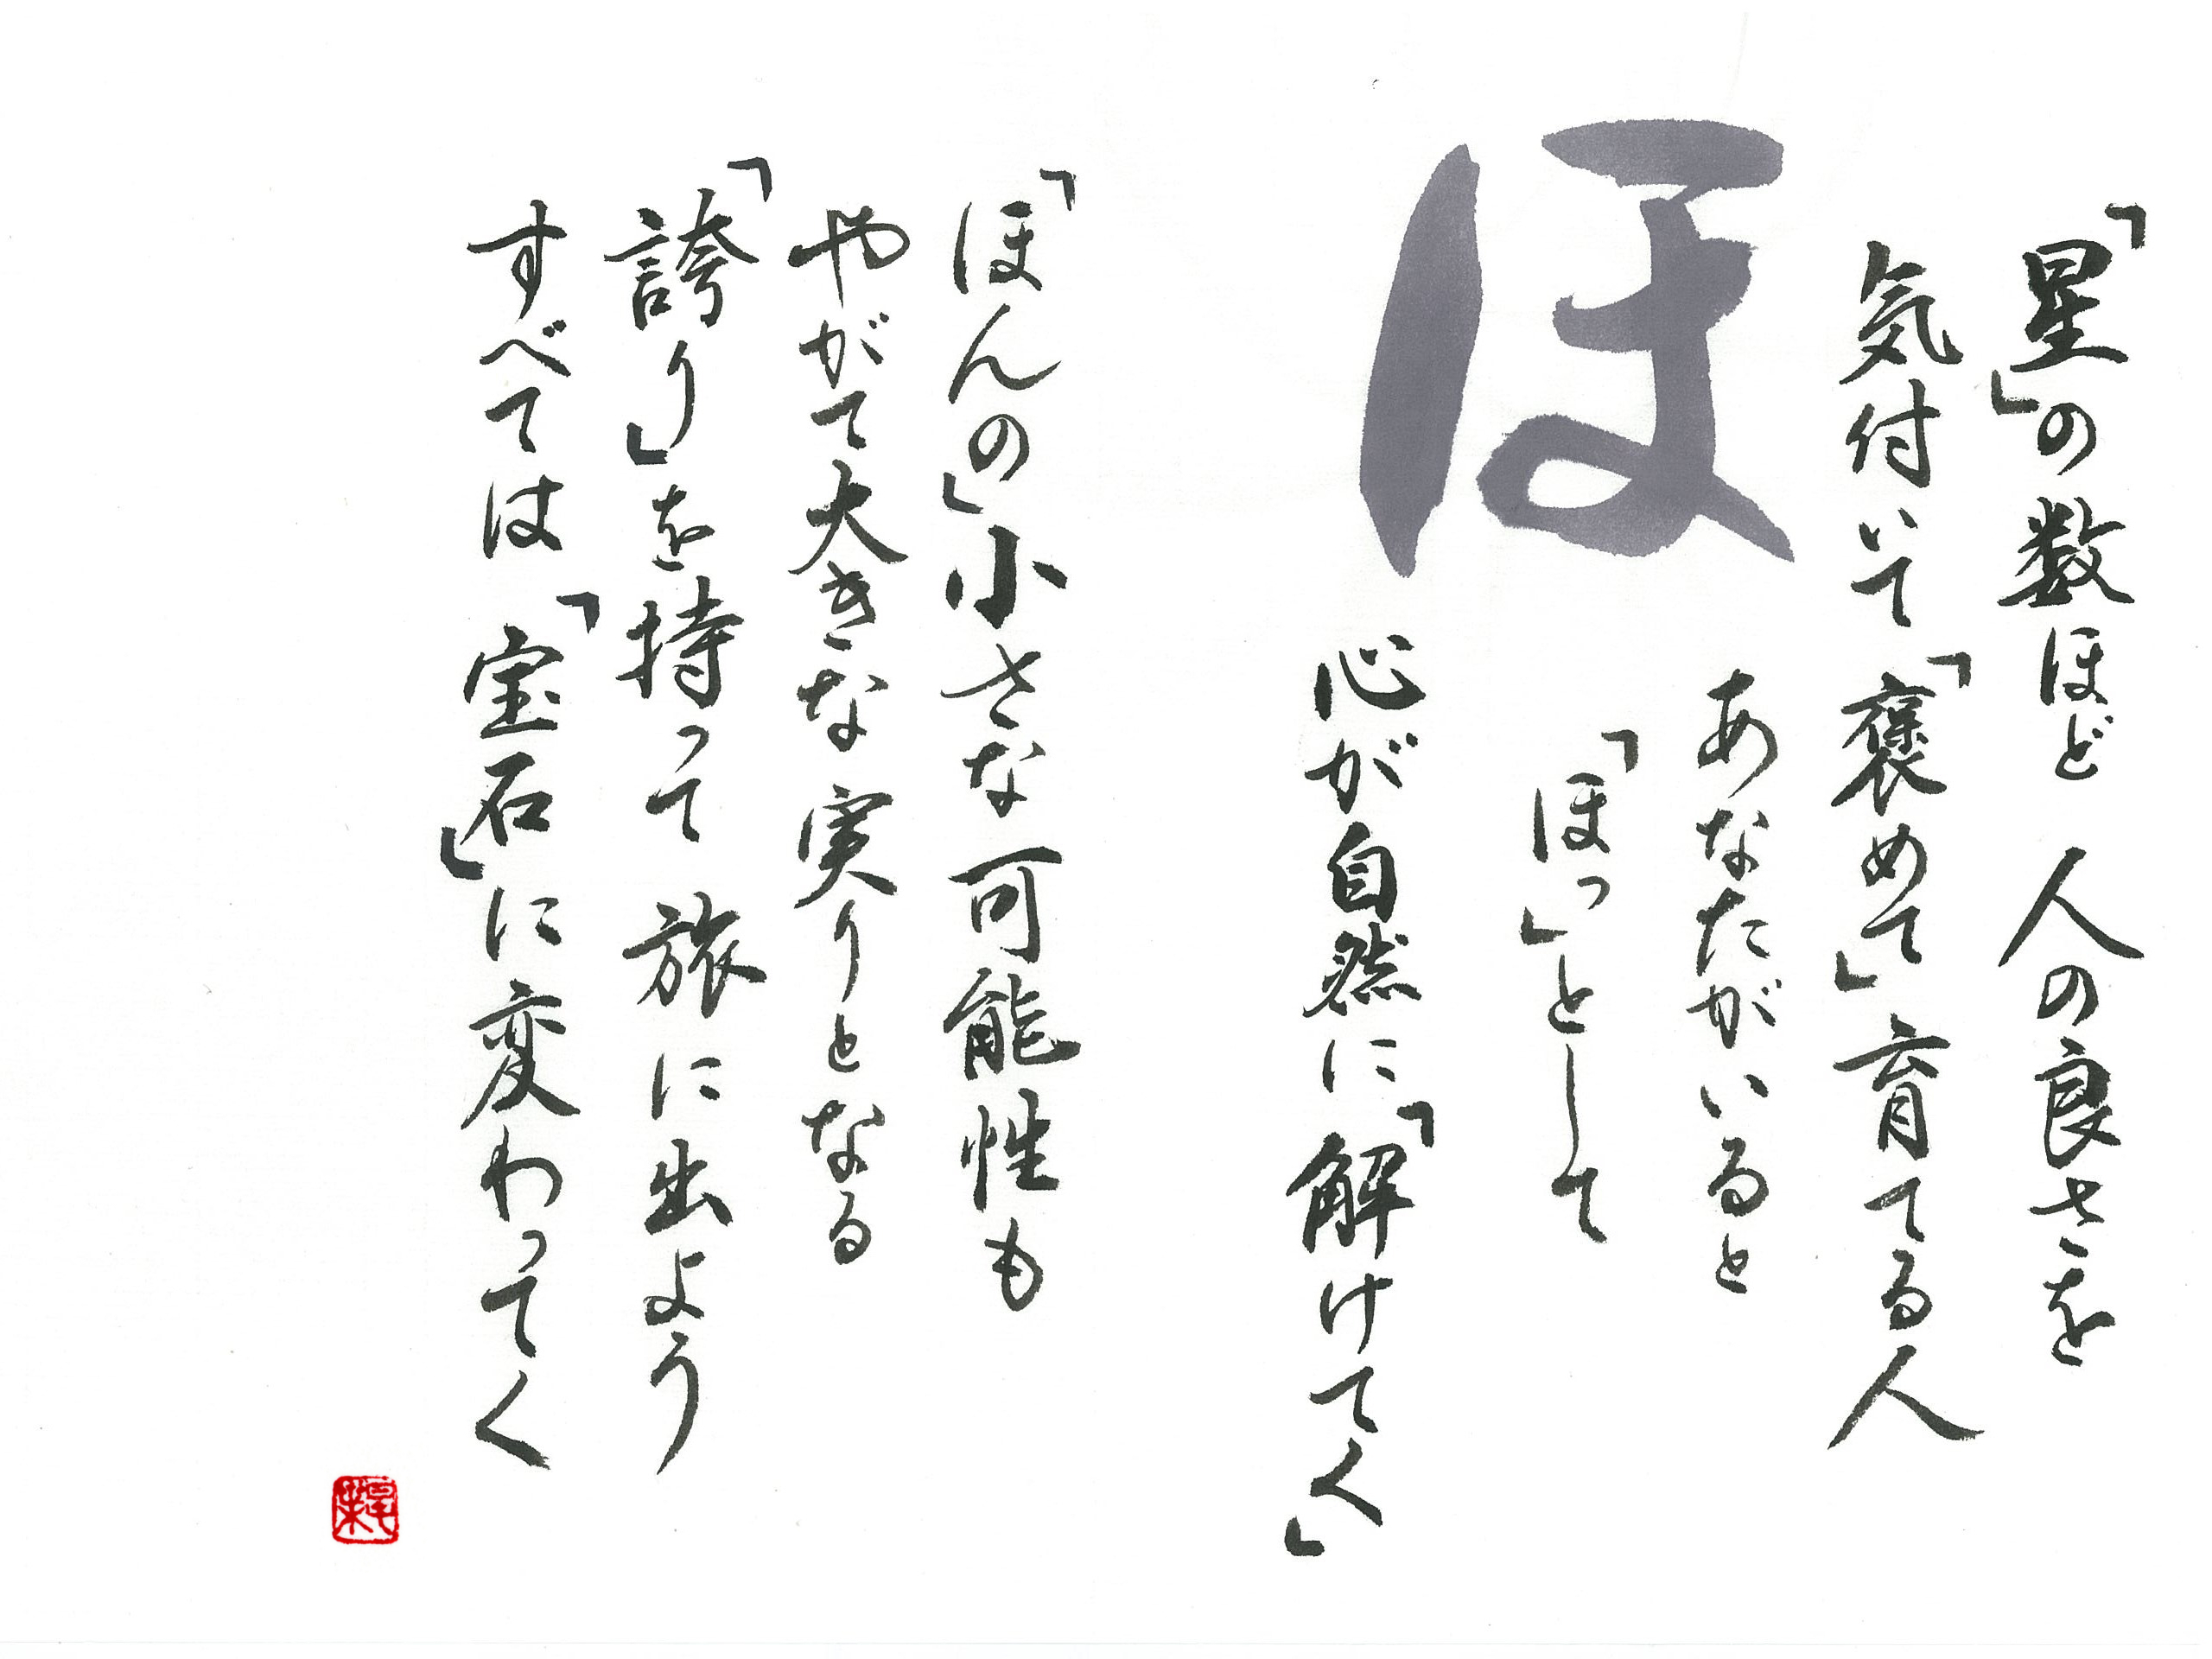 「星」の数ほど 人の良さを
気付いて「褒めて」育てる人
ほ
あなたがいると
「ほっ」として
心が自然に「解けてく」
「ほんの」小さな可能性も
やがて大きな実りとなる
「誇り」を持って 旅に出よう
すべては「宝石」に変わってく